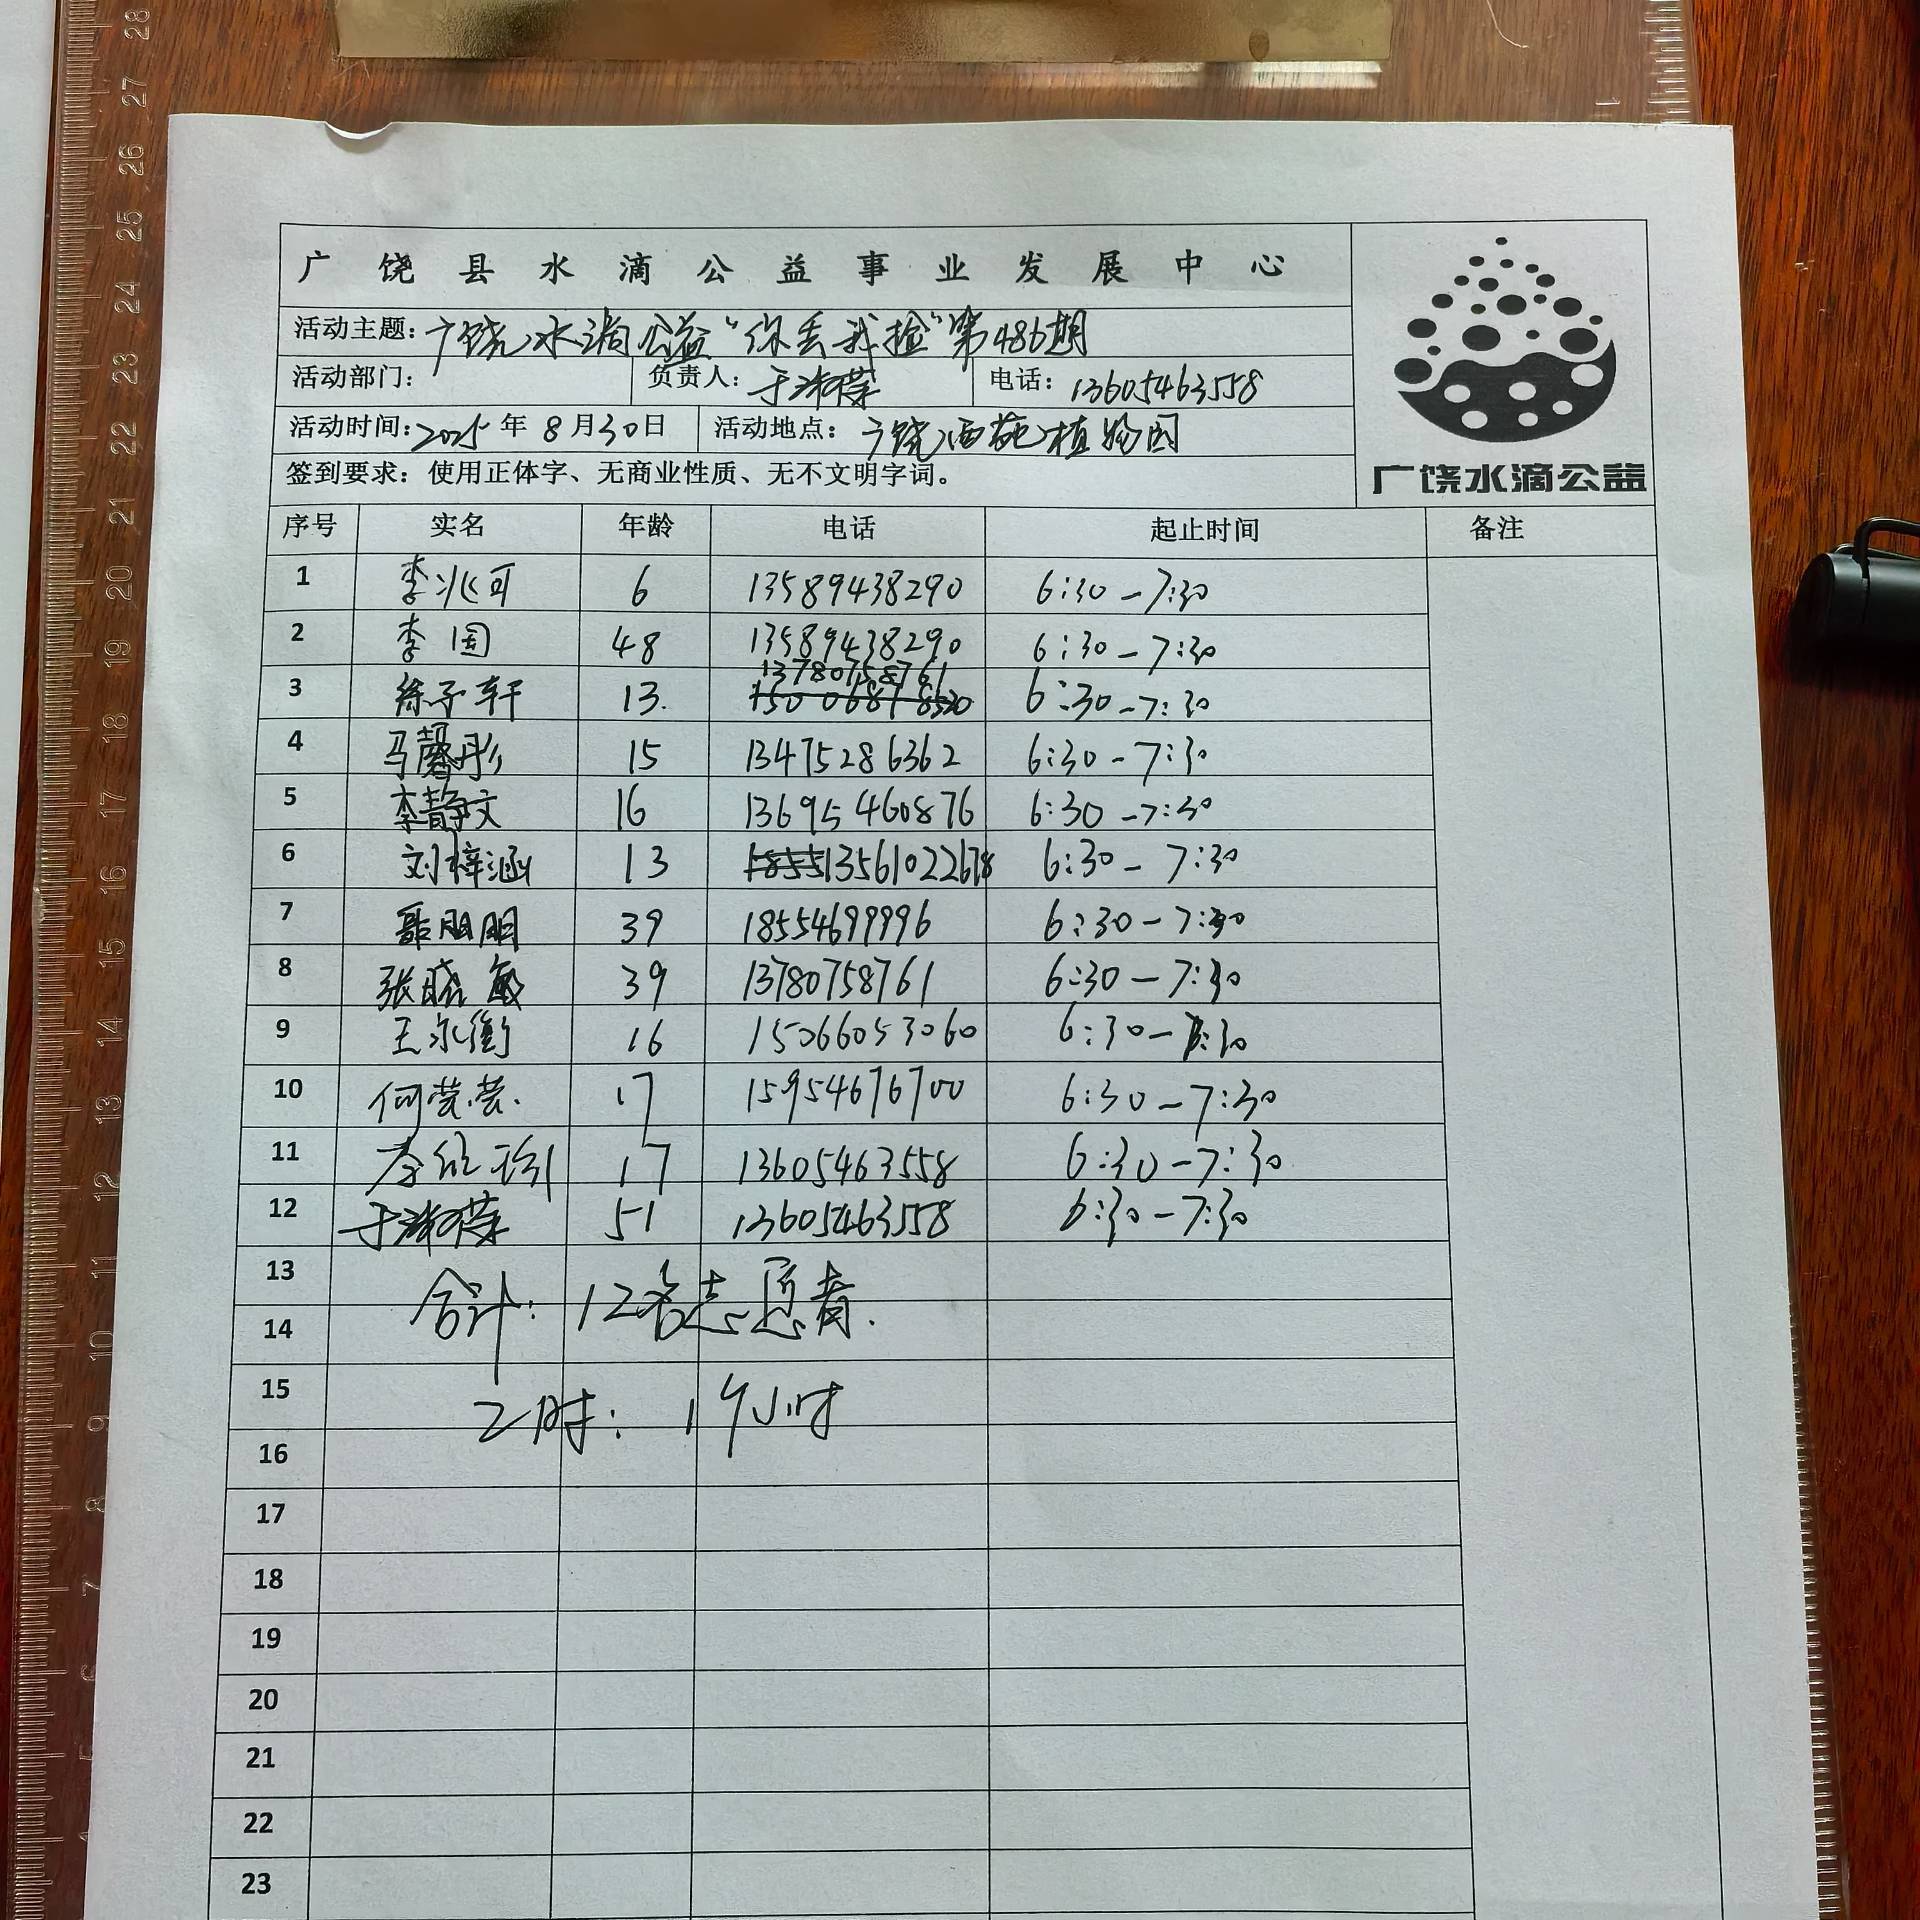 广饶县水滴公益事业发展中心
活动主题:广饶水滴公益"你丢我捡"第486期
活动部门: 负责人: 电话: 13605463558
活动时间:2025年8月30日 活动地点: 广饶西苑植物园
签到要求: 使用正体字、无商业性质、无不文明字词。
广饶水滴公益
序号 实名 年龄 电话 起止时间 备注
1 李兆可 6 13589438290 6:30-7:30
2 李国 48 13589438290 6:30-7:30
3 徐子轩 13. 13780758761 6:30-7:30
4 马馨彤 15 13475286362 6:30-7:30
5 李静文 16 13695460876 6:30-7:30
6 刘梓涵 13 13561022678 6:30-7:30
7 39 18554699996 6:30-7:30
8 张晓敏 39 13780758761 6:30-7:30
9 王永衡 16 15066053060 6:30-7:30
10 何芸芸. 17 15954676700 6:30-7:30
11 17 13605463558 6:30-7:30
12 51 13605463558 6:30-7:30
13
合计: 12名志愿者.
14
15
工时: 1个小时
16
17
18
19
20
21
22
23
28
27
26
25
24
23
22
21
20
19
18
17
16
15
14
13
12
11
10
9
8
7
6
5
4